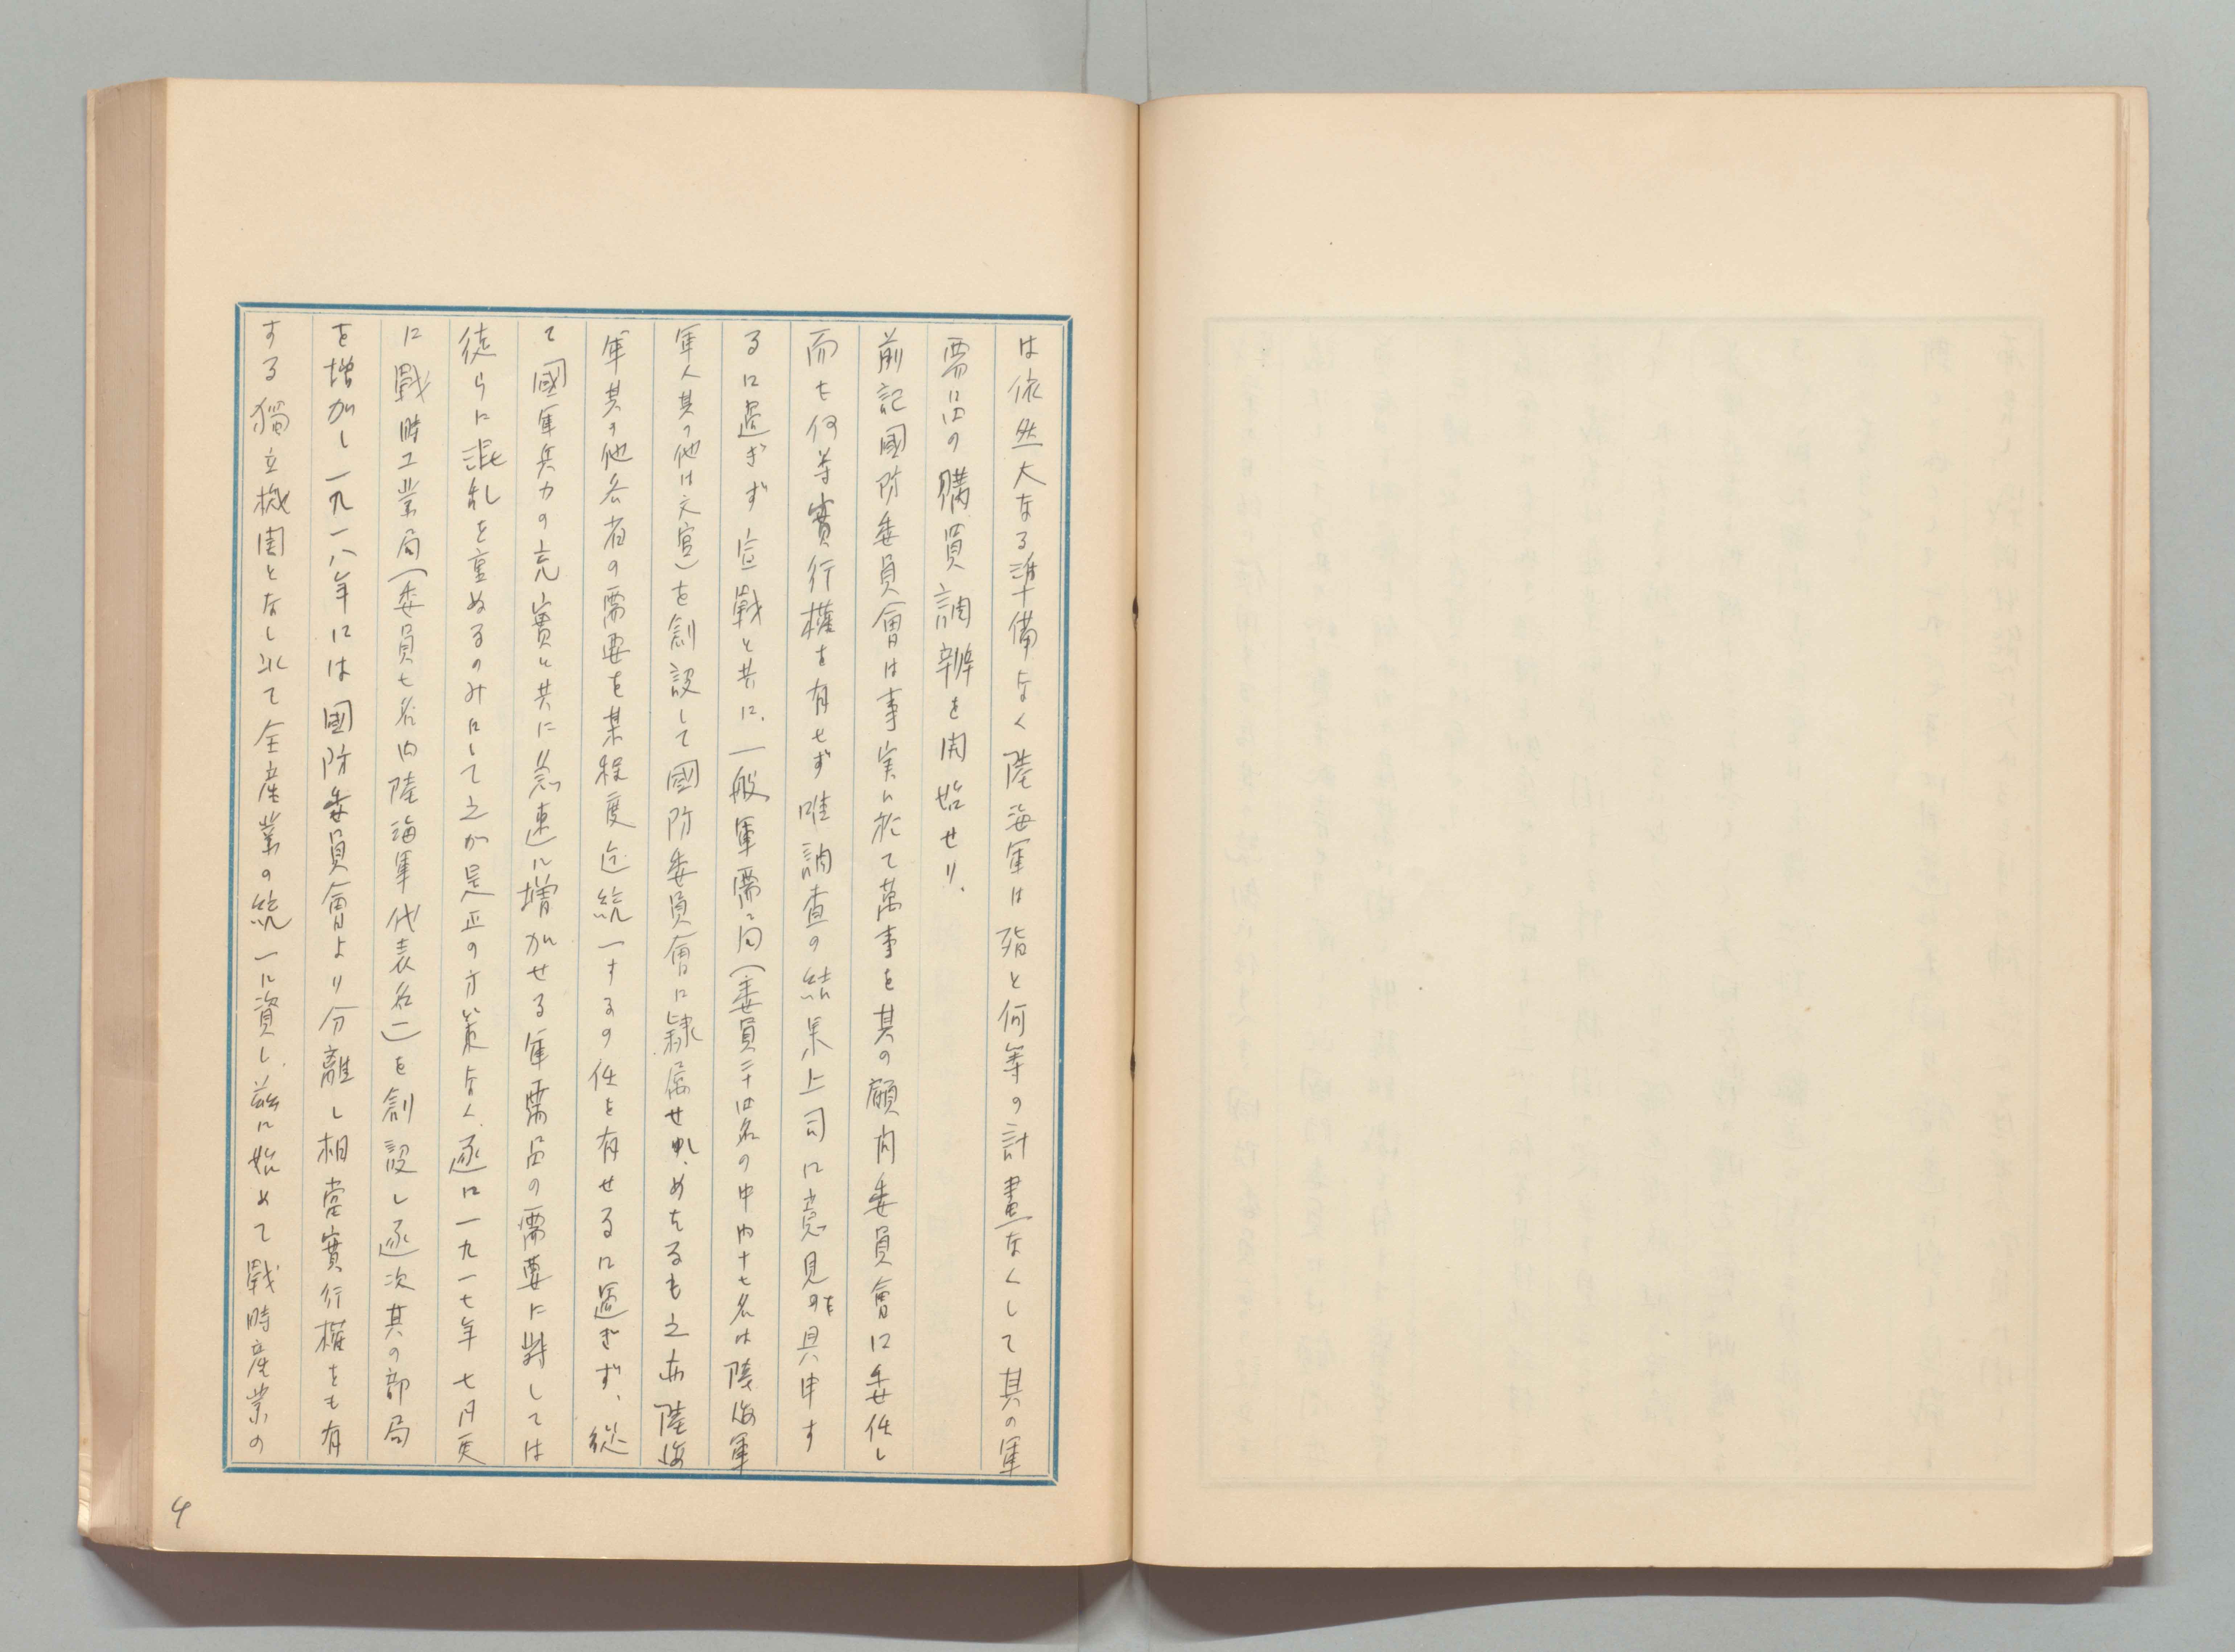 は依然大なる準備なく陸海軍は殆と何等の計畫なくして其の軍
需品の購買調辨を開始せり、
前記國防委員會は事実に於て萬事を其の顧問委員會に委任し
而も何等實行權を有せず唯調査の結果上司に意見の具申す
るに過ぎず宣戰と共に、一般軍需局(委員二十四名の中内十七名は陸海軍
軍人其の他は文官)を創設して國防委員會に隷属せしめたるも之亦陸海
軍其の他各省の需要を某程度迄統一するの任を有せるに過ぎず、從
て國軍兵力の充實と共に急速に増加せる軍需品の需要に對しては
徒らに混乱を重ぬるのみにして之が是正の方策なく、遂に一九一七年七月更
に戰時工業局(委員七名内陸海軍代表各一)を創設し逐次其の部局
を増加し一九一八年には國防委員會より分離し相當實行權をも有
する獨立機関となし以て全産業の統一に資し、茲に始めて戰時産業の
4